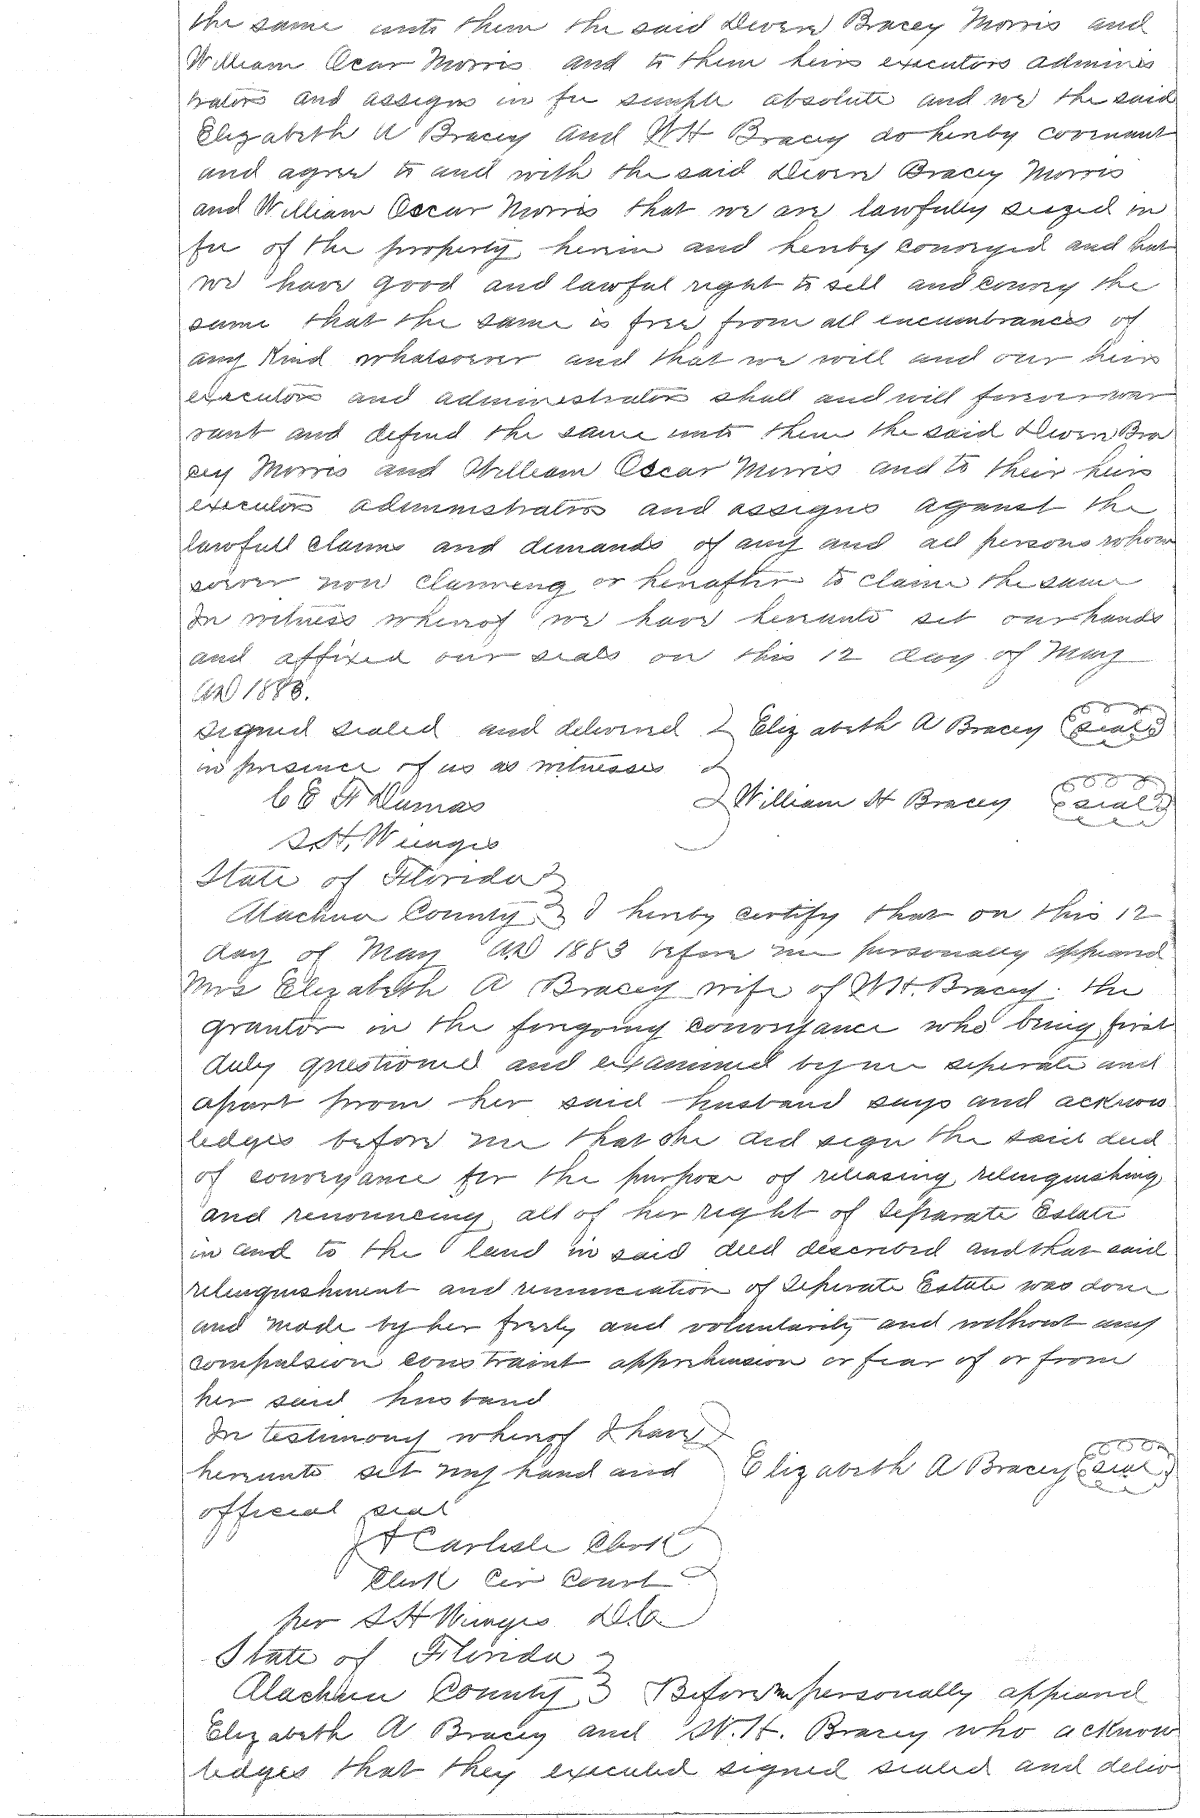 the same unto them the said Devere Bracey Morris and
William Ocar Morris and to them heirs executors adminis
trators and assigns in fee simple absolute and we the said
Elizabeth A Bracey and WH Bracey do hereby covenant
and agree to and with the said Devere Bracey Morris
and William Oscar Morris that we are lawfully seized in
fee of the property herein and hereby conveyed and that
we have good and lawful right to sell and convey the
same that the same is free from all encumbrances of
any kind whatsoever and that we will and our heirs
executors and administrators shall and will forever war
rant and defend the same unto them the said Devere Bra
cey Morris and William Oscar Morris and to their heirs
executors administrators and assigns against the
lawfull claims and demands of any and all persons whom
soever now claiming or hereafter to claim the same
In witness whereof we have hereunto set our hands
and affixed our seals on this 12 day of May
AD 1883.
signed sealed and delivered Elizabeth A Bracey seal
in presence of us as witnesses
C E F Dumas William H Bracey seal
S.H. Wienges
State of Florida
Alachua County I hereby certify that on this 12
day of May AD 1883 before me personally appeared
Mrs Elizabeth A Bracey wife of WH. Bracey. the
grantor in the foregoing conveyance who being first
duly questioned and examined by me seperate and
apart from her said husband says and acknow
ledges before me that she did sign the said deed
of conveyance for the purpose of releasing relinquishing
and renouncing all of her right of Separate Estate
in and to the land in said deed described and that said
relinquishment and renunciation of Seperate Estate was done
and made by her freely and voluntarily and without any
compulsion constraint apprehension or fear of or from
her said husband
In testimony whereof I have
hereunto set my hand and Elizabeth A Bracey seal
official seal
J A Carlisle Clerk
Clerk Cir Court
per S H Wienges D.C.
State of Florida
Alachua County Before me personally appeared
Elizabeth A Bracey and W. H. Bracey who acknow
ledges that they executed signed sealed and deliv